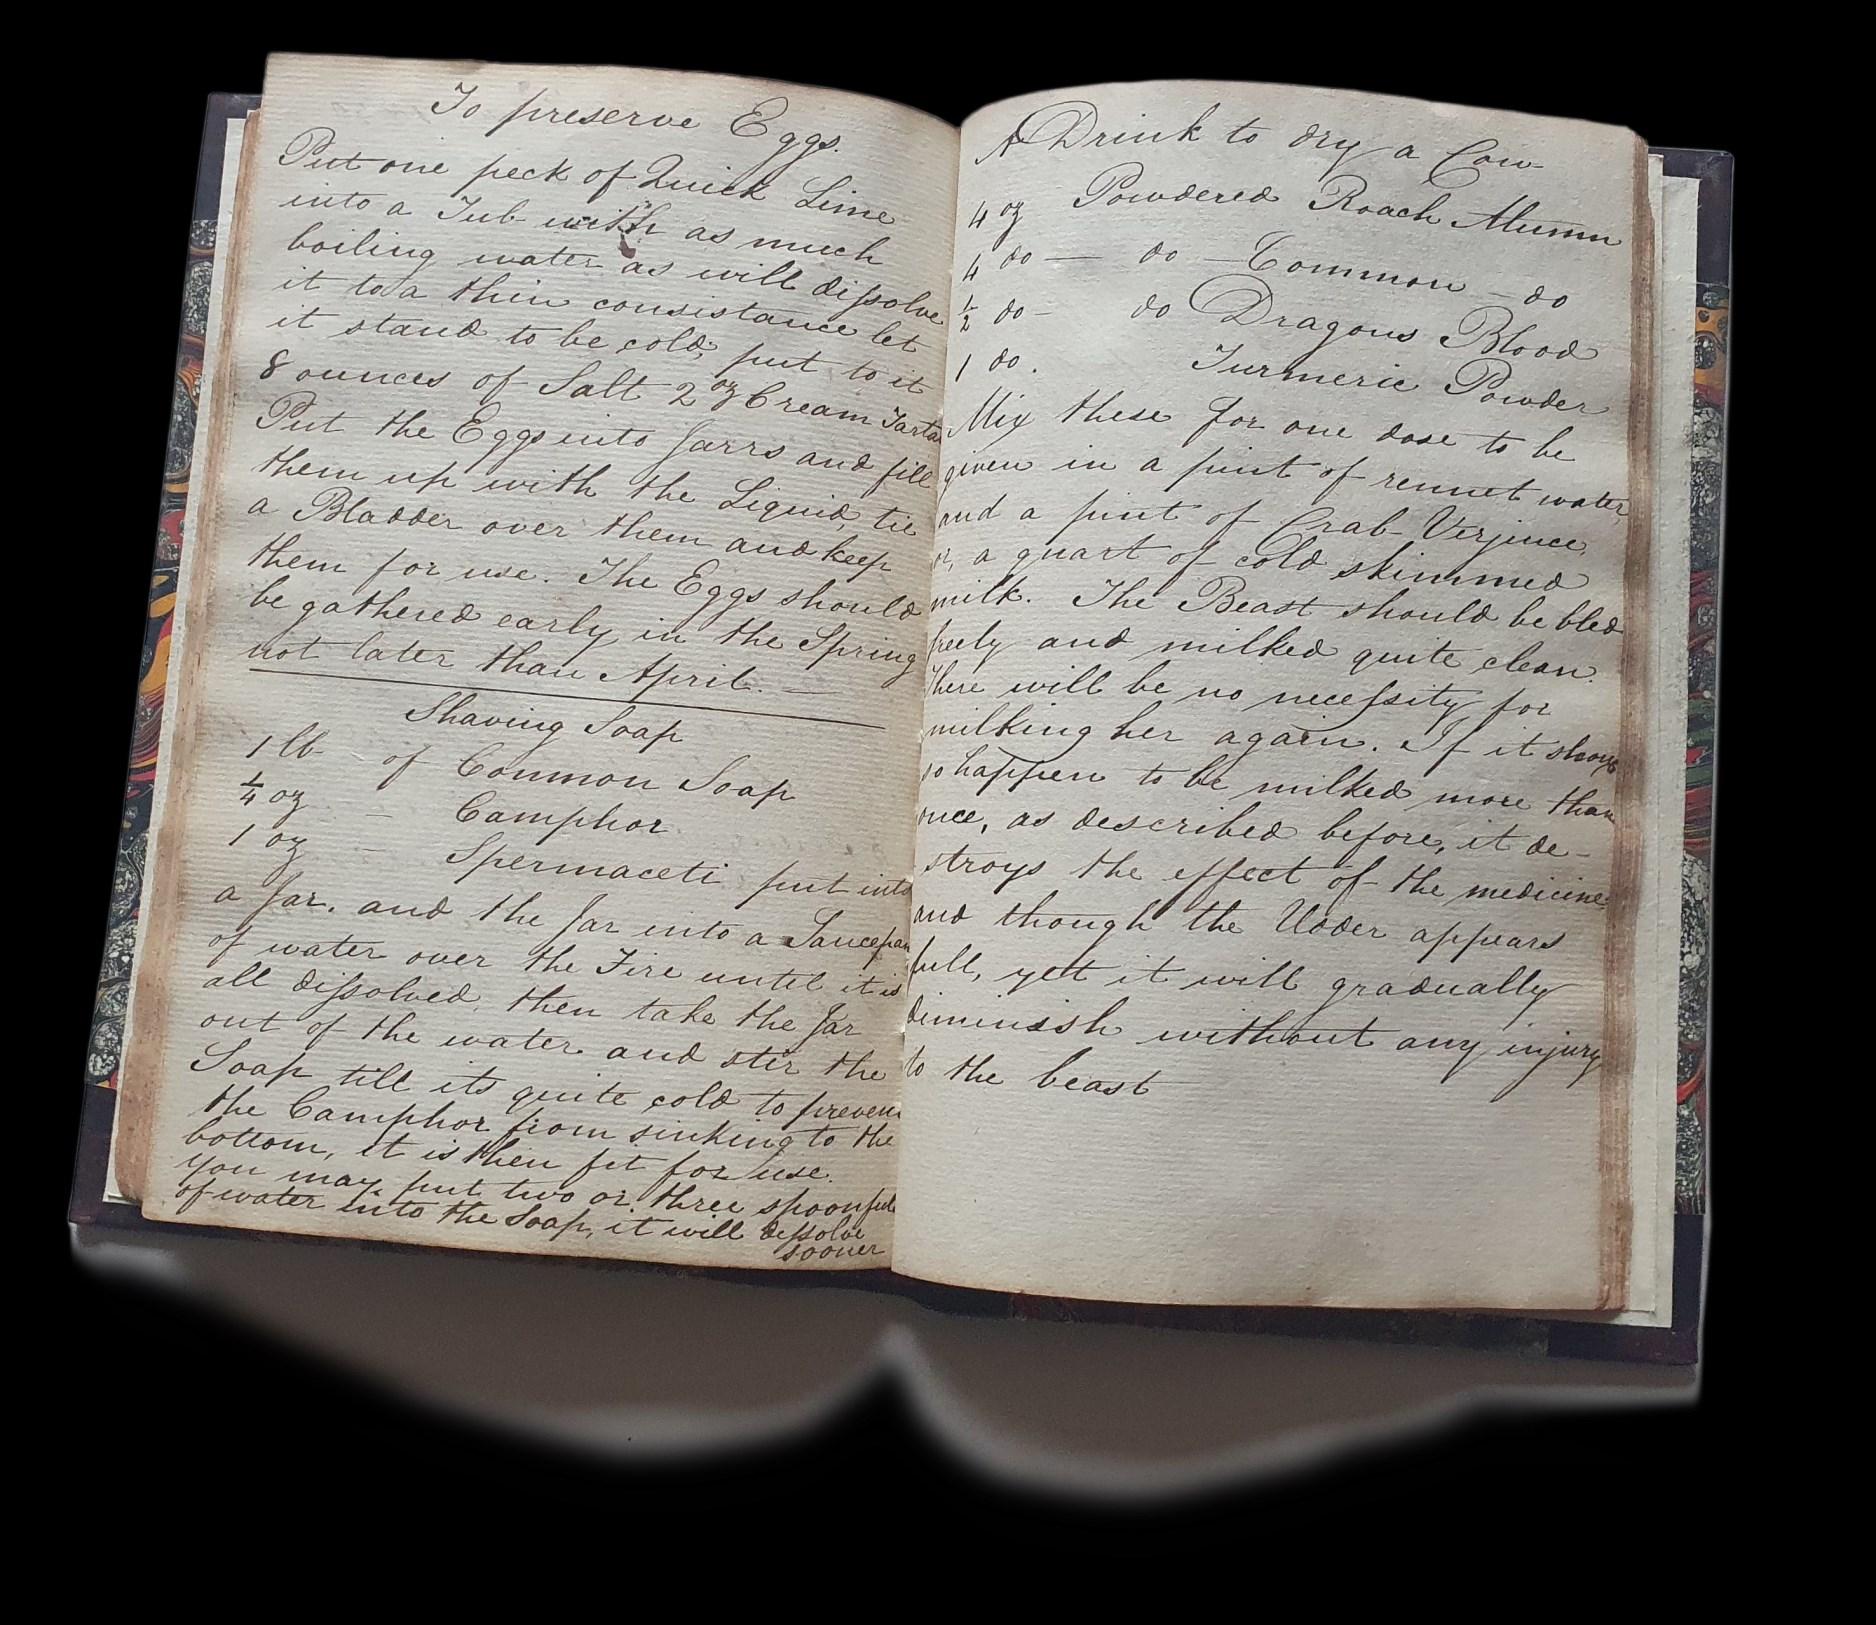 To preserve Eggs.
Put one peck of Quick Lime
into a Tub with as much
boiling water as will dissolve
it to a thin consistance let
it stand to be cold, put to it
8 ounces of Salt 2 oz Cream Tartar
Put the Eggs into Jarrs and fill
them up with the Liquid, tie
a Bladder over them and keep
them for use. The Eggs should
be gathered early in the Spring
not later than April. —
Shaving Soap
1 lb of Common Soap
1/4 oz – Camphor
1 oz – Spermaceti put into
a Jar, and the Jar into a Saucepan
of water over the Fire until it is
all dissolved, then take the Jar
out of the water and stir the
Soap till its quite cold to prevent
the Camphor from sinking to the
bottom, it is then fit for use.
You may put two or three spoonfuls
of water into the Soap, it will dissolve
sooner
A Drink to dry a Cow-
4 oz Powdered Roach Alumn
4 do — do — Common — do
1/2 do – do Dragons Blood
1 do. Turmeric Powder
Mix these for one dose to be
given in a pint of rennet water,
and a pint of Crab Verjuce,
or, a quart of cold skimmed
milk. The Beast should be bled
freely and milked quite clean.
There will be no necessity for
milking her again. If it should
so happen to be milked more than
once, as described before, it de-
stroys the effect of the medicine;
and though the Udder appears
full, yet it will gradually
diminissh without any injury
to the beast